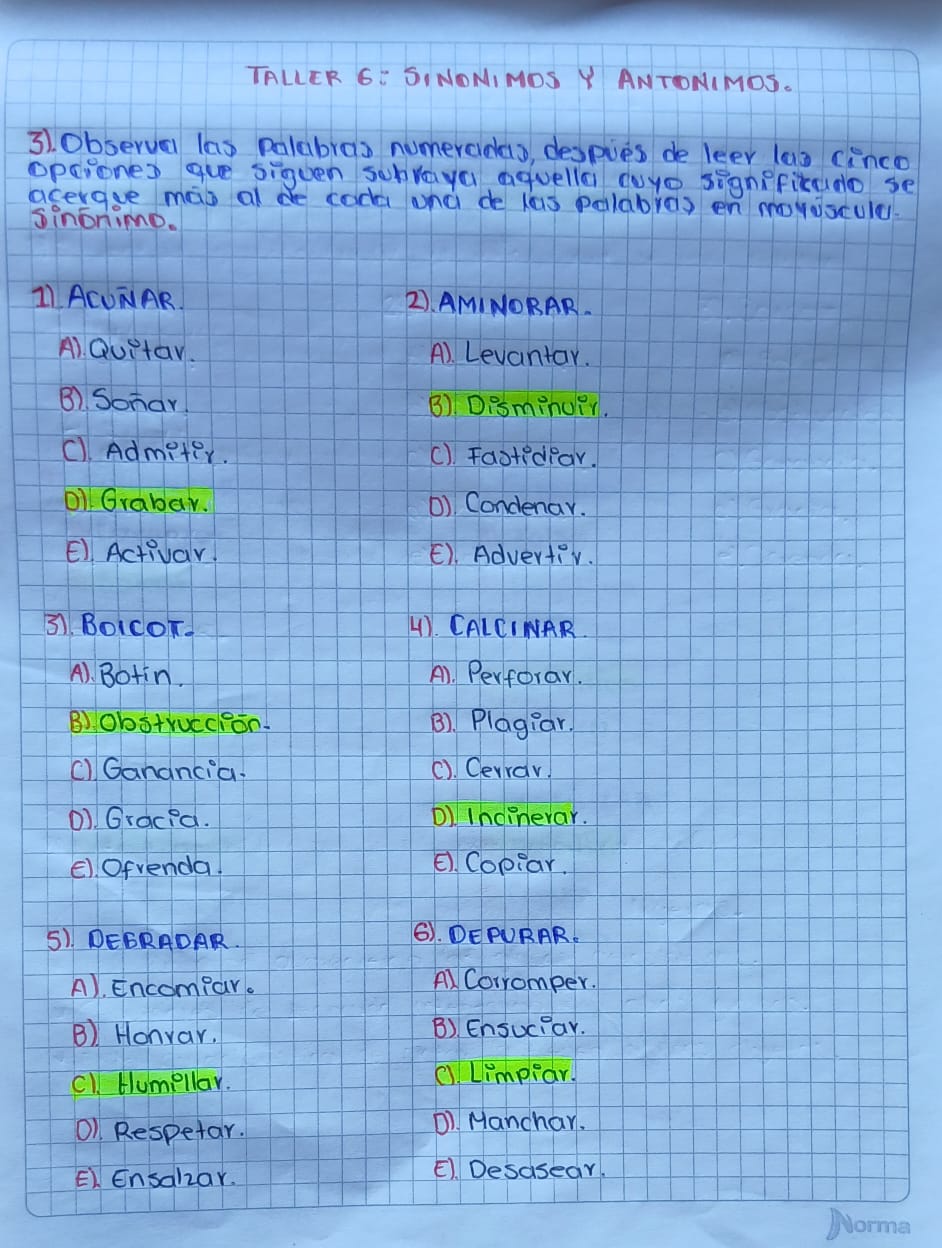 TALLER 6: SINONIMOS Y ANTONIMOS.
3). Observa las palabras numeradas, despues de leer las cinco
opciones que siguen subraya aquella cuyo significado se
acerque mas al de cada una de las palabras en mayuscula.
Sinonimo.
1) ACUÑAR.
A). Quitar.
B). Soñar.
C). Admitir.
D). Grabar.
E). Activar.
2). AMINORAR.
A). Levantar.
B). Disminuir.
C). Fastidiar.
D). Condenar.
E). Advertir.
3). BOICOT.
A). Botin.
B). Obstrucción.
C). Ganancia.
D). Gracia.
E). Ofrenda.
4). CALCINAR.
A). Perforar.
B). Plagiar.
C). Cerrar.
D). Incinerar.
E). Copiar.
5). DEGRADAR.
A). Encomiar.
B). Honrar.
C). Humillar.
D). Respetar.
E). Ensalzar.
6). DEPURAR.
A). Corromper.
B). Ensuciar.
C). Limpiar.
D). Manchar.
E). Desasear.
Norma